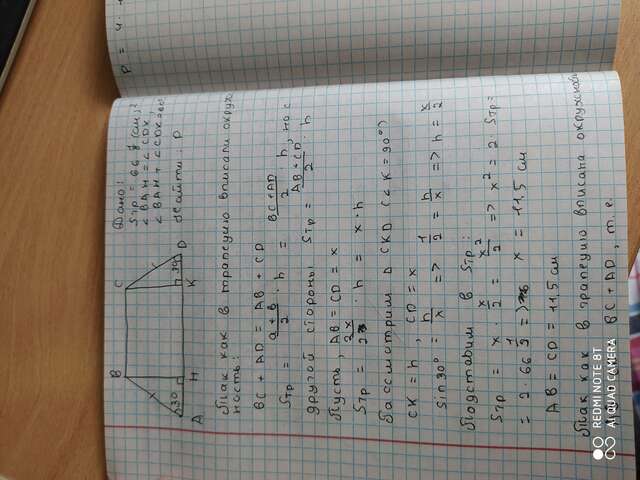 P = 4 ·
Дано:
Sтр = 66 1/8 (см
∠BAH = ∠CDK
∠BAH + ∠CDK =
Найти: P
B
C
x
30
30
A
H
K
D
Так как в трапецию вписали окруж
ность:
BC + AD = AB + CD
Sтр = a + b / 2 · h = BC + AD / 2 · h, но с
другой стороны Sтр = AB + CD / 2 · h
Пусть, AB = CD = x
Sтр = 2x / 2 · h = x · h
Рассмотрим Δ CKD (∠K = 90°)
CK = h, CD = x
sin 30° = h / x => 1 / 2 = h / x => h = x / 2
Подставим в Sтр:
Sтр = x · x / 2 = x² / 2 => x² = 2 · Sтр =
= 2 · 66 1/8 => x = 11,5 см
AB = CD = 11,5 см
Так как в трапецию вписана окружнос
BC + AD, т.е.
REDMI NOTE 8T
AI QUAD CAMERA